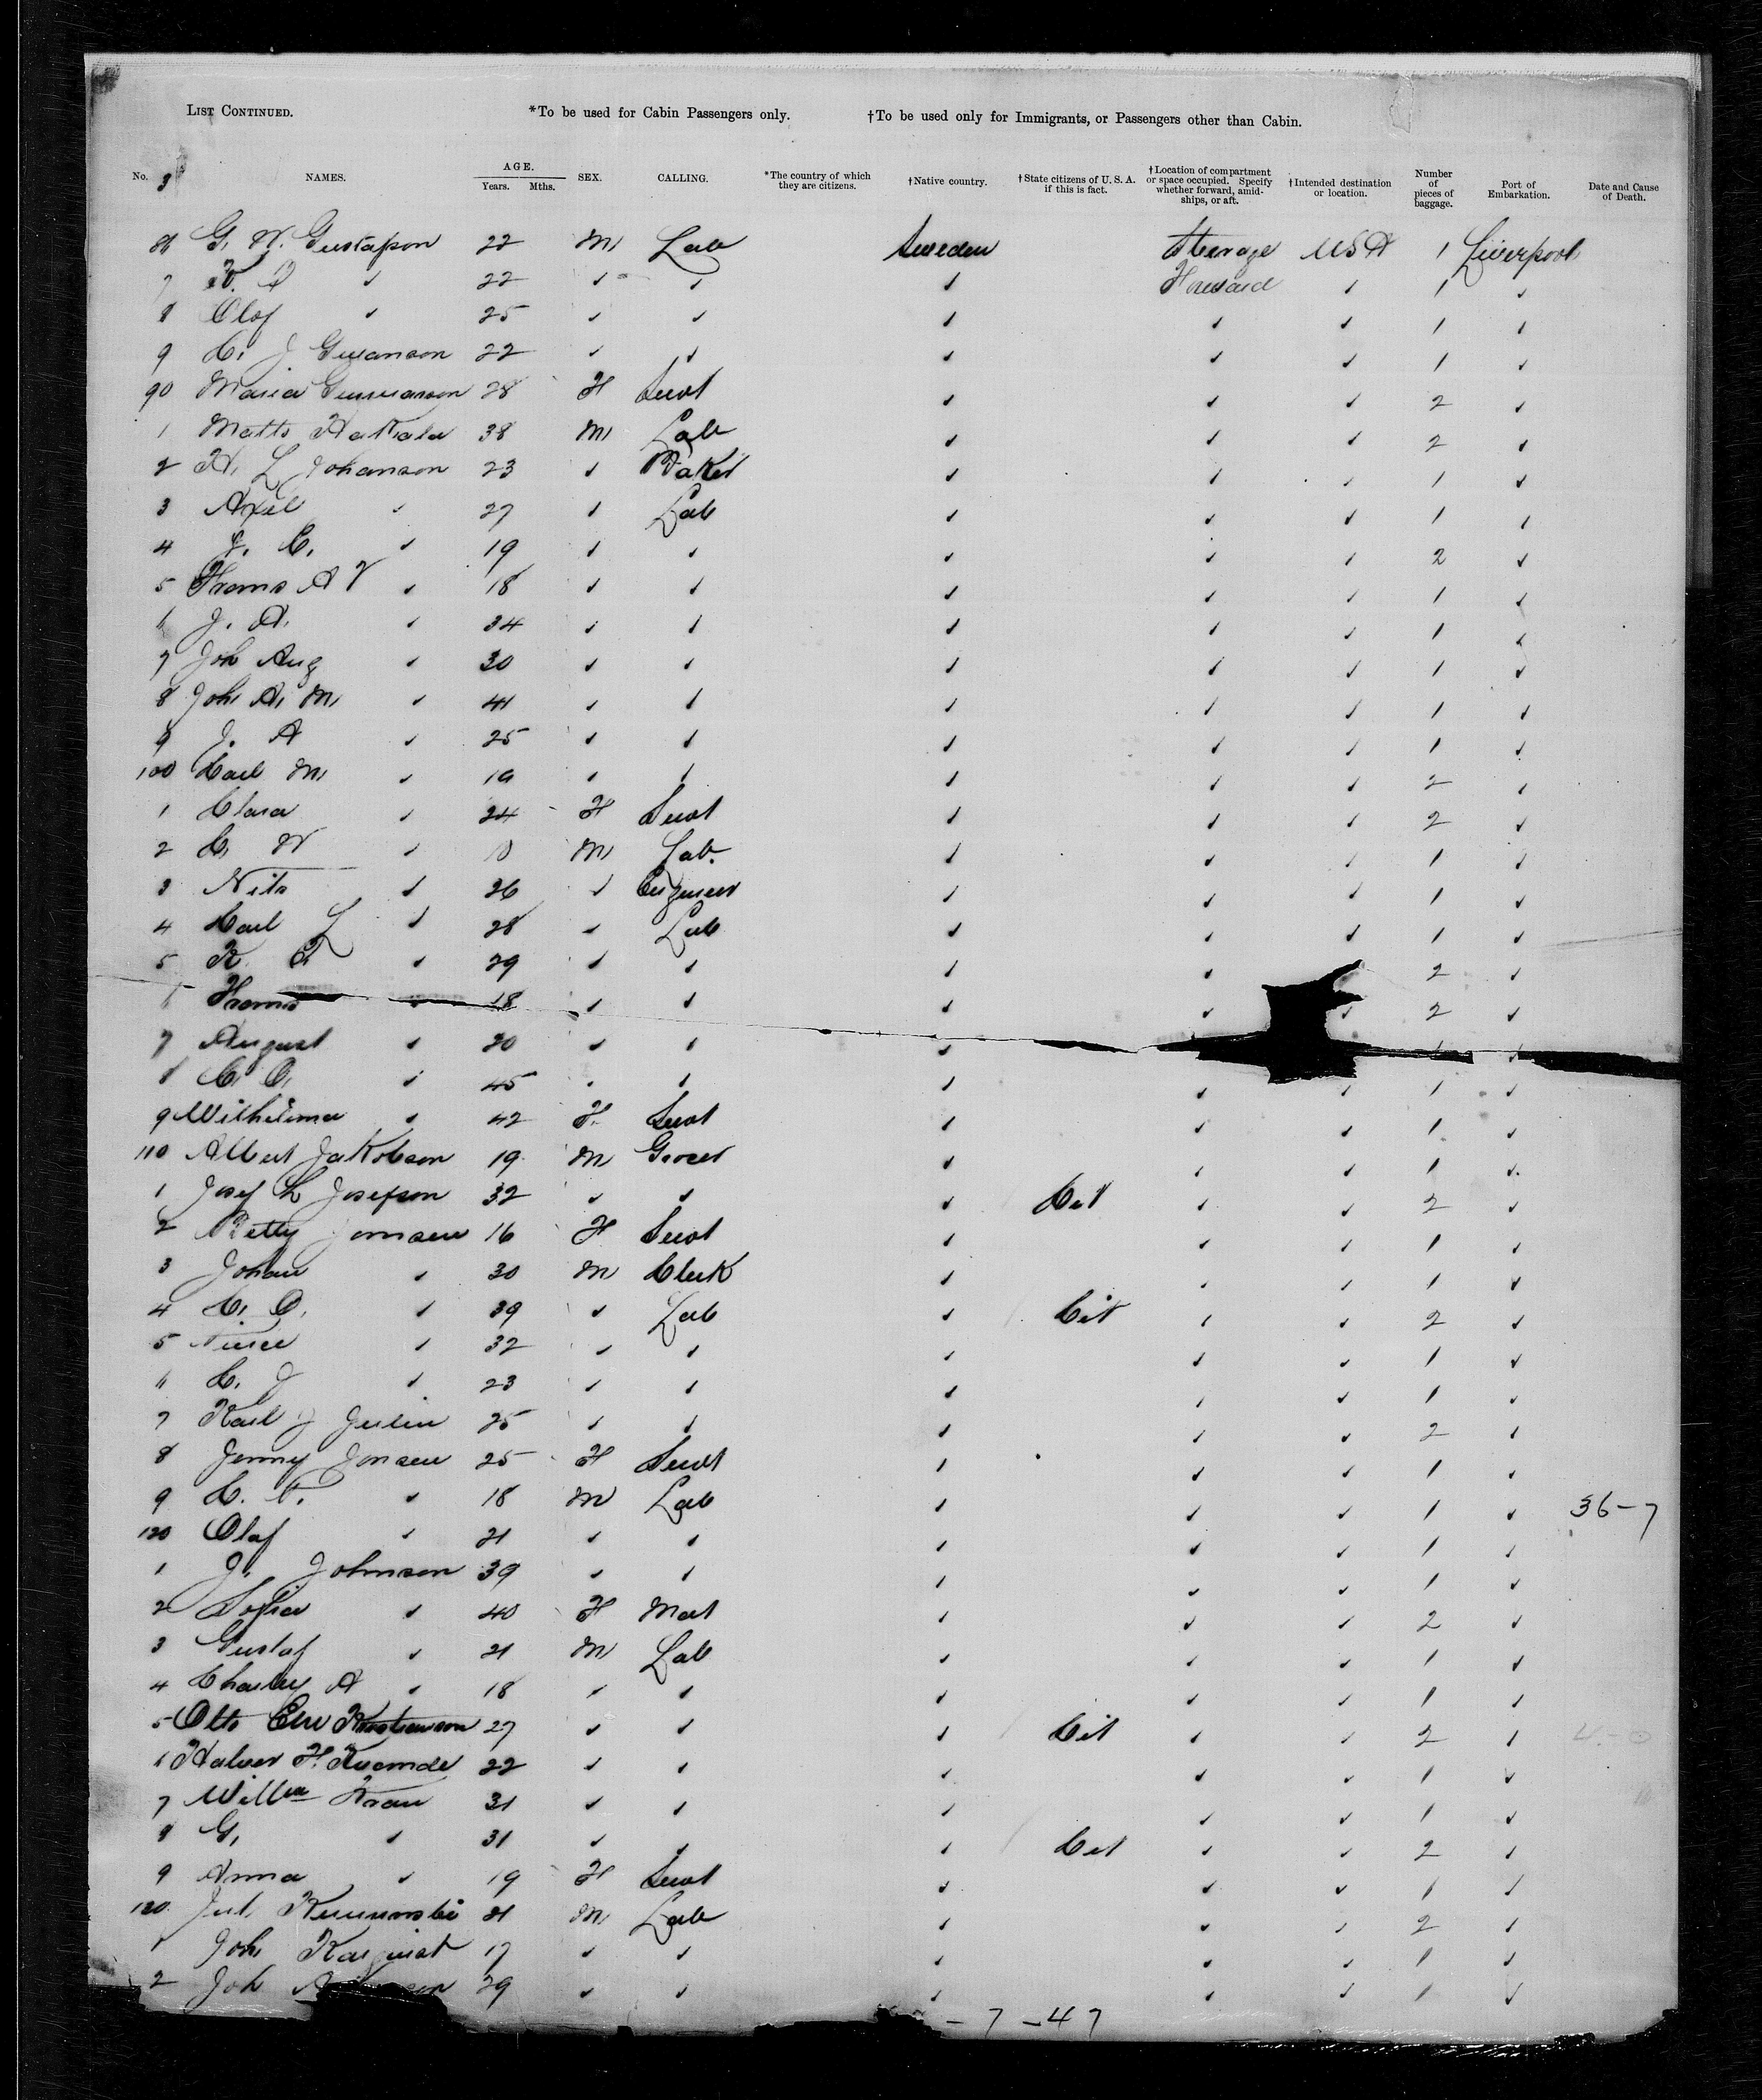 LIST CONTINUED. *To be used for Cabin Passengers only. †To be used only for Immigrants, or Passengers other than Cabin.
No. 3 NAMES. AGE. Years. Mths. SEX. CALLING. *The country of which they are citizens. †Native country. †State citizens of U. S. A. if this is fact. †Location of compartment or space occupied. Specify whether forward, amidships, or aft. †Intended destination or location. Number of pieces of baggage. Port of Embarkation. Date and Cause of Death.
86 G. W. Gustafson 22 M Lab Sweden Steerage USA 1 Liverpool
7 ✓ 22 ✓ ✓ ✓ Forward ✓ 1 ✓
8 Olof ✓ 25 ✓ ✓ ✓ ✓ ✓ 1 ✓
9 C. J 22 ✓ ✓ ✓ ✓ ✓ 1 ✓
90 Maria Gunnarson 28 F Servt ✓ ✓ ✓ 2 ✓
1 Matts 38 M Lab ✓ ✓ ✓ 2 ✓
2 H. L Johanson 23 ✓ Baker ✓ ✓ ✓ 1 ✓
3 Axel ✓ 27 ✓ Lab ✓ ✓ ✓ 1 ✓
4 J. C. ✓ 19 ✓ ✓ ✓ ✓ ✓ 2 ✓
5 A V ✓ 18 ✓ ✓ ✓ ✓ ✓ 1 ✓
6 J. A. ✓ 34 ✓ ✓ ✓ ✓ ✓ 1 ✓
7 Joh Aug ✓ 30 ✓ ✓ ✓ ✓ ✓ 1 ✓
8 Joh. A. M. ✓ 41 ✓ ✓ ✓ ✓ ✓ 1 ✓
9 J. A ✓ 25 ✓ ✓ ✓ ✓ ✓ 1 ✓
100 Carl M. ✓ 19 ✓ ✓ ✓ ✓ ✓ 2 ✓
1 Clara ✓ 24 F Servt ✓ ✓ ✓ 2 ✓
2 C. W ✓ M Lab. ✓ ✓ ✓ 1 ✓
3 Nils ✓ 26 ✓ Engineer ✓ ✓ ✓ 1 ✓
4 Carl L ✓ 28 ✓ Lab ✓ ✓ ✓ 1 ✓
5 K. ✓ 29 ✓ ✓ ✓ ✓ 2 ✓
6 ✓ 18 ✓ ✓ ✓ ✓ ✓ 2 ✓
7 August ✓ 20 ✓ ✓ ✓ 1 ✓
8 C. O. ✓ 45 ✓ ✓ ✓ ✓ ✓ 1 ✓
9 Wilhelmina ✓ 42 F. Servt ✓ ✓ ✓ 1 ✓
110 Albert Jakobson 19 M Grocer ✓ ✓ ✓ 1 ✓
1 Josef L Josefson 32 ✓ ✓ ✓ Cit ✓ ✓ 2 ✓
2 Betty Jonsen 16 F Servt ✓ ✓ ✓ 1 ✓
3 Johan ✓ 30 M Clerk ✓ ✓ ✓ 1 ✓
4 C. O. ✓ 39 ✓ Lab ✓ Cit ✓ ✓ 2 ✓
5 ✓ 32 ✓ ✓ ✓ ✓ ✓ 1 ✓
6 C. J ✓ 23 ✓ ✓ ✓ ✓ ✓ 1 ✓
7 Karl J Julin 25 ✓ ✓ ✓ ✓ ✓ 2 ✓
8 Jenny Jonsen 25 F Servt ✓ ✓ ✓ 1 ✓
9 ✓ 18 M Lab ✓ ✓ ✓ 1 ✓ 36-7
120 Olaf ✓ 21 ✓ ✓ ✓ ✓ ✓ 1 ✓
1 J. Johnson 39 ✓ ✓ ✓ ✓ ✓ 1 ✓
2 Sofia ✓ 40 F Mat ✓ ✓ ✓ 2 ✓
3 Gustaf ✓ 21 M Lab ✓ ✓ ✓ 1 ✓
4 Charley A ✓ 18 ✓ ✓ ✓ ✓ ✓ 1 ✓
5 Otto 27 ✓ ✓ ✓ Cit ✓ ✓ 2 ✓
6 Halvor H. 22 ✓ ✓ ✓ ✓ ✓ 1 ✓
7 Willm 31 ✓ ✓ ✓ ✓ ✓ 1 ✓
8 G. ✓ 31 ✓ ✓ ✓ Cit ✓ ✓ 2 ✓
9 Anna ✓ 19 F Servt ✓ ✓ ✓ 1 ✓
130 21 M Lab ✓ ✓ ✓ 2 ✓
1 Joh. 17 ✓ ✓ ✓ ✓ ✓ 1 ✓
2 Joh 29 ✓ ✓ ✓ ✓ ✓ 1 ✓
- 7 - 47